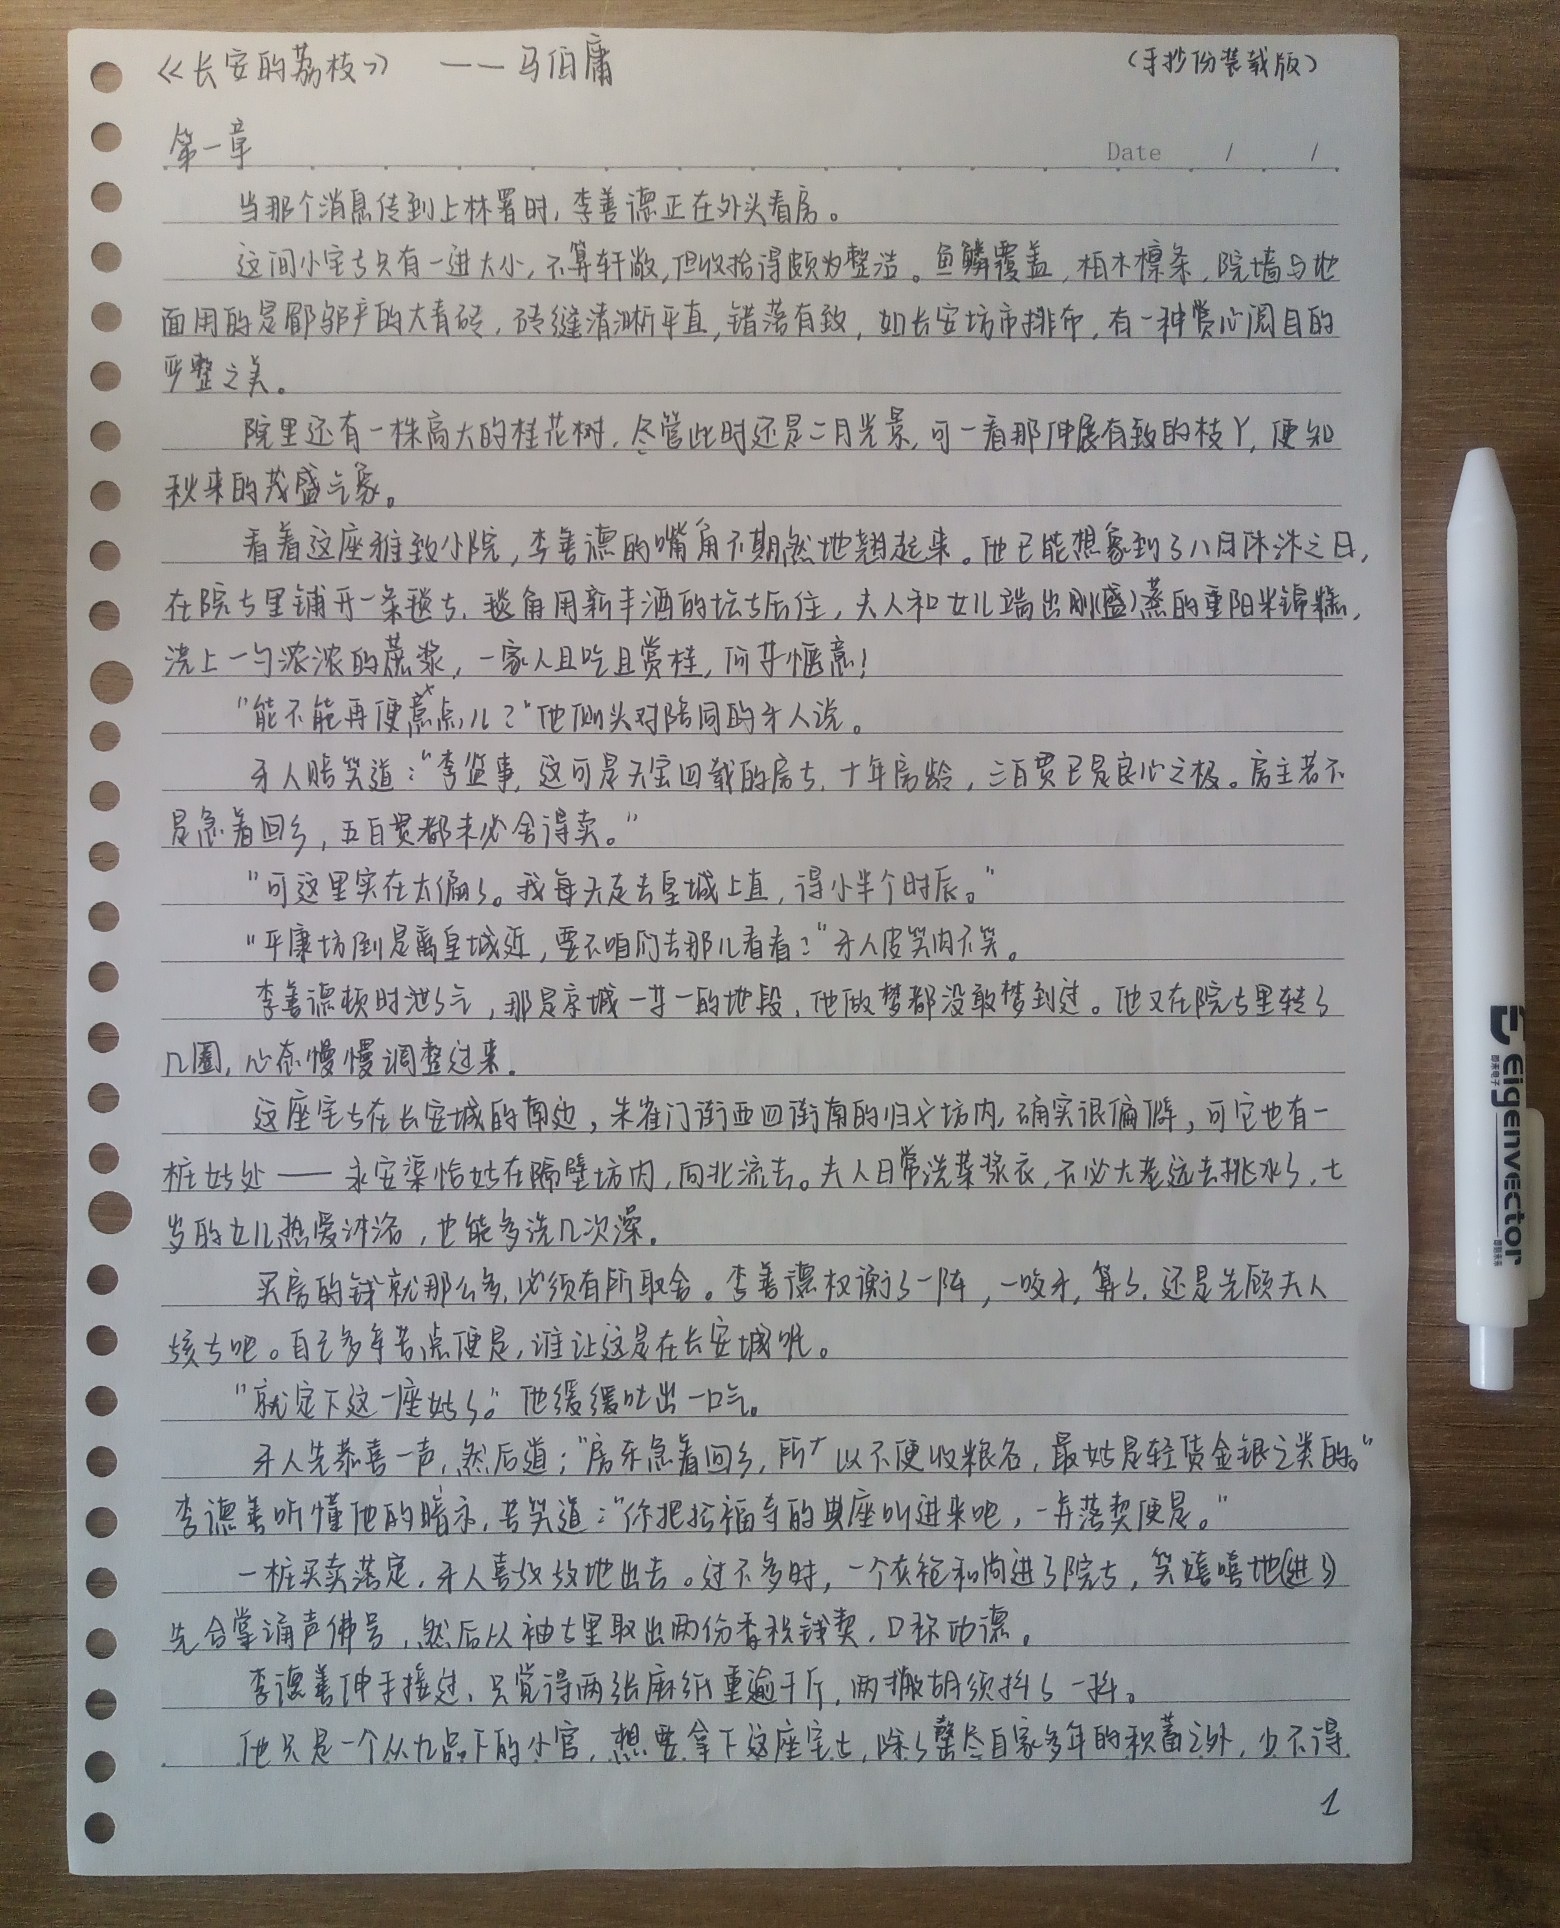 《长安的荔枝》 ——马伯庸 (手抄份装载版)
第一章
Date / /
当那个消息传到上林署时,李善德正在外头看房。
这间小宅子只有一进大小,不算轩敞,但收拾得颇为整洁。鱼鳞覆盖,柏木檩条,院墙与地
面用的是郿邬产的大青砖,砖缝清晰平直,错落有致,如长安坊市排布,有一种赏心阅目的
严整之美。
院里还有一株高大的桂花树,尽管此时还是二月光景,可一看那伸展有致的枝丫,便知
秋来的茂盛气象。
看着这座雅致小院,李善德的嘴角不期然地翘起来。他已能想象到了八月休沐之日,
在院子里铺开一条毯子,毯角用新丰酒的坛子压住,夫人和女儿端出刚(盛)蒸的重阳米锦糕,
浇上一勺浓浓的蔗浆,一家人且吃且赏桂,何等惬意!
"能不能再便宜点儿?"他侧头对陪同的牙人说。
牙人赔笑道:"李监事,这可是天宝四载的房子,十年房龄,三百贯已是良心之极。房主若不
是急着回乡,五百贯都未必舍得卖。"
"可这里实在太偏了。我每天走去皇城上直,得小半个时辰。"
"平康坊倒是离皇城近,要不咱们去那儿看看?"牙人皮笑肉不笑。
李善德顿时泄了气,那是京城一等一的地段,他做梦都没敢梦到过。他又在院子里转了
几圈,心态慢慢调整过来。
这座宅子在长安城的南边,朱雀门街西四街南的归义坊内,确实很偏僻,可它也有一
桩好处——永安渠恰好在隔壁坊内,向北流去。夫人日常洗菜浆衣,不必大老远去挑水了,七
岁的女儿热爱沐浴,也能多洗几次澡。
买房的钱就那么多,必须有所取舍。李善德权衡了一阵,一咬牙,算了,还是先顾夫人
孩子吧。自己多辛苦点便是,谁让这是在长安城呢。
"就定下这一座好了。"他缓缓吐出一口气。
牙人先恭喜一声,然后道:"房东急着回乡,所以不便收粮谷,最好是轻货金银之类的。"
李德善听懂他的暗示,苦笑道:"你把招福寺的典座叫进来吧,一并落契便是。"
一桩买卖落定,牙人喜孜孜地出去。过不多时,一个灰袍和尚进了院子,笑嘻嘻地(进了)
先合掌诵声佛号,然后从袖子里取出两份香积钱契,口称功德。
李德善伸手接过,只觉得两张麻纸重逾千斤,两撇胡须抖了一抖。
他只是一个从九品下的小官,想要拿下这座宅子,除了罄尽自家多年的积蓄之外,少不得
1
Eigenvector